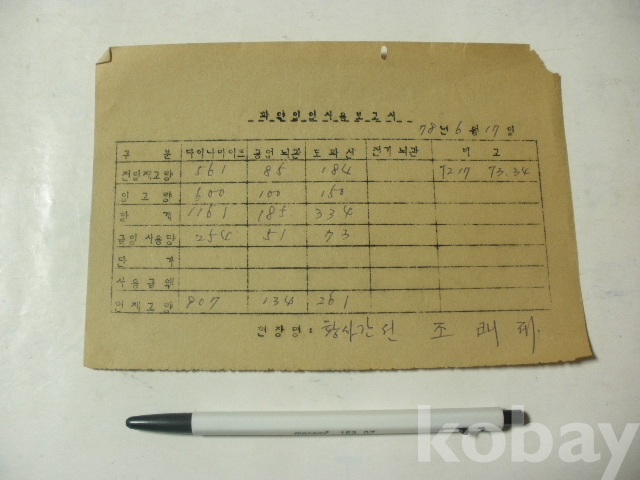 화약일일사용보고서
78년 6월 17일
구 분 다이나마이트 공업뇌관 도화선 전기뇌관 비 고
전일재고량 561 85 184 72.17 73.34
입고량 600 100 150
누 계 1161 185 334
금일사용량 254 51 73
단 가
사용금액
현재고량 907 134 261
현장명: 황사간선 조 배 제
kobay